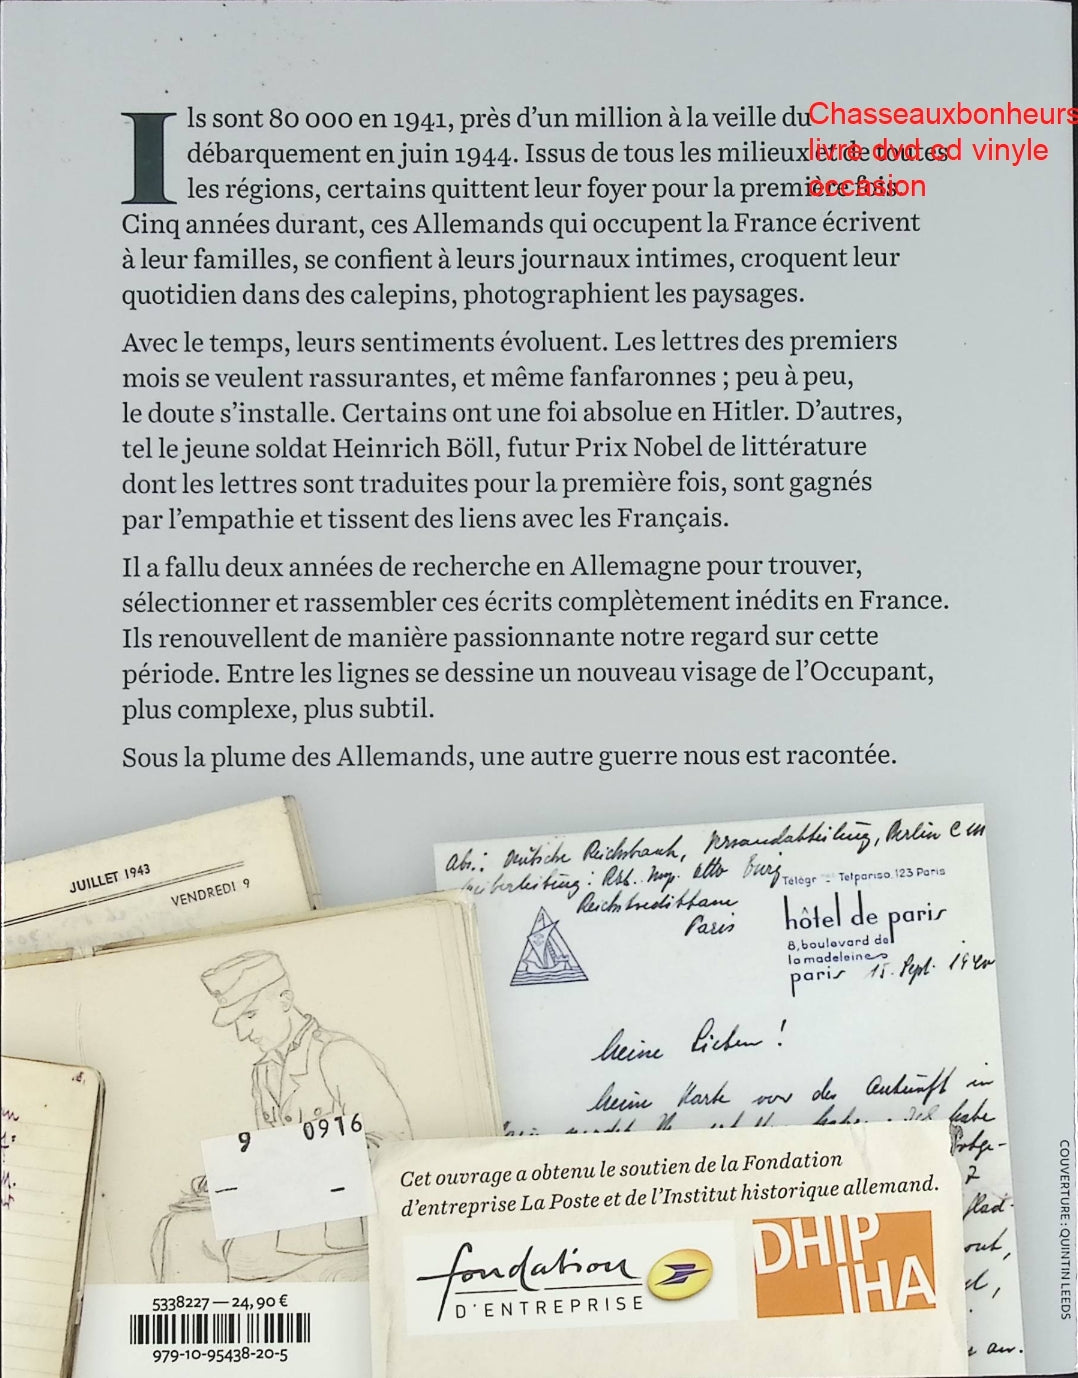 Ils sont 80 000 en 1941, près d'un million à la veille du
débarquement en juin 1944. Issus de tous les milieux et de toutes
les régions, certains quittent leur foyer pour la première fois.
Cinq années durant, ces Allemands qui occupent la France écrivent
à leur familles, se confient à leurs journaux intimes, croquent leur
quotidien dans des calepins, photographient les paysages.
Avec le temps, leurs sentiments évoluent. Les lettres des premiers
mois se veulent rassurantes, et même fanfaronnes ; peu à peu,
le doute s'installe. Certains ont une foi absolue en Hitler. D'autres,
tel le jeune soldat Heinrich Böll, futur Prix Nobel de littérature
dont les lettres sont traduites pour la première fois, sont gagnés
par l'empathie et tissent des liens avec les Français.
Il a fallu deux années de recherche en Allemagne pour trouver,
sélectionner et rassembler ces écrits complètement inédits en France.
Ils renouvellent de manière passionnante notre regard sur cette
période. Entre les lignes se dessine un nouveau visage de l'Occupant,
plus complexe, plus subtil.
Sous la plume des Allemands, une autre guerre nous est racontée.
Chasseauxbonheurs
livre dvd cd vinyle
occasion
JUILLET 1943
VENDREDI 9
Abs.: Deutsche Reichsbank, Versandabteilung, Berlin C
Reichskreditkasse
Paris
Telpariso. 123 Paris
hôtel de paris
8, boulevard de
la madeleine
paris 15. Sept. 1940
Meine Lieben!
Meine Karte von der Ankunft in
9 0916
Cet ouvrage a obtenu le soutien de la Fondation
d'entreprise La Poste et de l'Institut historique allemand.
fondation
D'ENTREPRISE
DHIP
IHA
5338227 — 24,90 €
979-10-95438-20-5
COUVERTURE : QUINTIN LEEDS